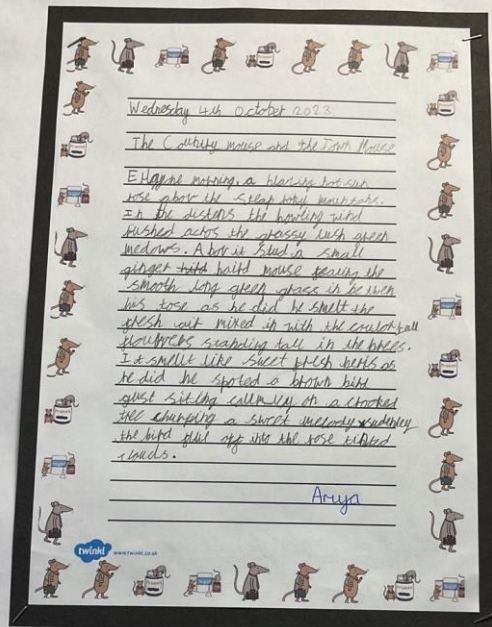 Wednesday 4th October 2023
The Coutury mouse and the Town Mouse
morning, a blazing hot sun
rose abov the steap rocky mountains.
In the distens the howling wind
rushed actos the grassy lush green
medows. A bov it stud a small
ginger haird mouse feaing the
smooth long green grass in be twen
his tose as he did he smelt the
fresh air mixed in with the coulorfall
flouwers standing tall in the brees.
It smelt like sweet fresh beris as
he did he spoted a brown bird
gust siting callmuly on a crooked
tree churping a sweet melody sudenley
the bird flue off into the rose tinted
clouds.
Aryn
twinkl www.twinkl.co.uk